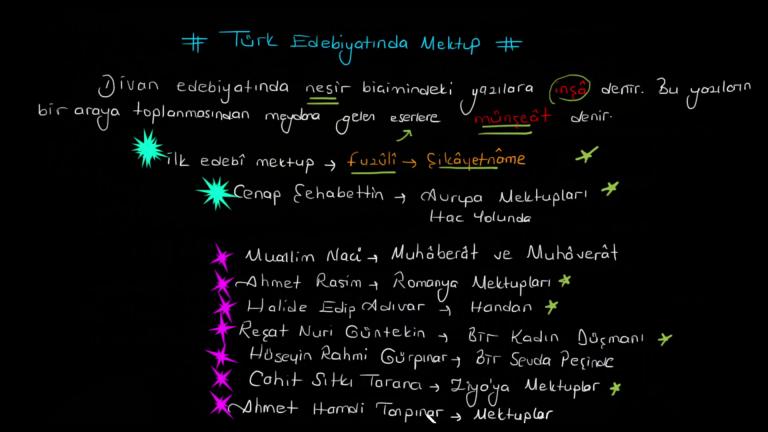 # Türk Edebiyatında Mektup #
Divan edebiyatında nesir biçimindeki yazılara inşâ denir. Bu yazıların
bir araya toplanmasından meydana gelen eserlere münşeât denir.
İlk edebî mektup → Fuzûlî → Şikâyetnâme
Cenap Şehabettin → Avrupa Mektupları
Hac Yolunda
Muallim Naci → Muhâberât ve Muhâverât
Ahmet Rasim → Romanya Mektupları
Halide Edip Adıvar → Handan
Reşat Nuri Güntekin → Bir Kadın Düşmanı
Hüseyin Rahmi Gürpınar → Bir Sevda Peşinde
Cahit Sıtkı Tarancı → Ziya'ya Mektuplar
Ahmet Hamdi Tanpınar → Mektuplar